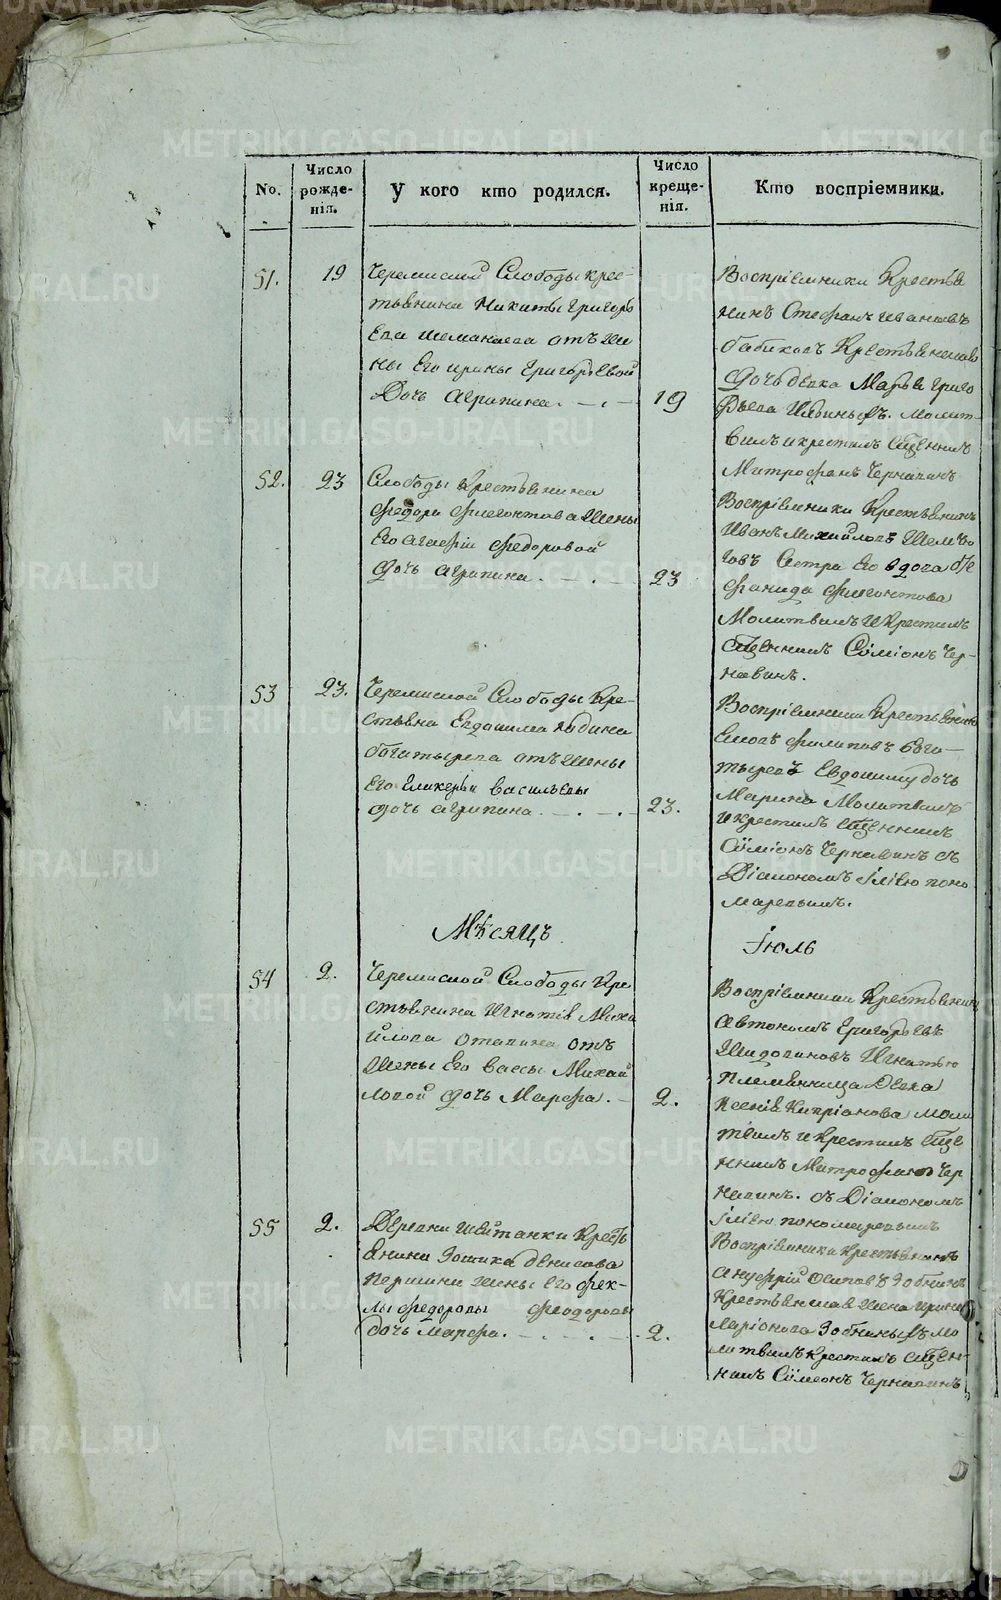 No.
Число рожде- нія.
У кого кто родился.
Число креще- нія.
Кто воспріемники.
51.
19
Черемиской Слободы крес-
тьянина Никиты Григорь
ева отъ же
ны Его Ирины Григорьевой
Дочь Агрипина.
19
Воспріемники Крестья
нинъ Стефанъ Ивановъ
Бабиновъ Крестьянская
Дочь девка Марья Григо
рьева молит-
вилъ и крестилъ Сщенникъ
Митрофанъ Чернавинъ
52.
23
Слободы Крестьянина
Федора Филектова жены
Его Агафіи Федоровой
Дочь Агрипина.
23
Воспріемники Крестьянинъ
Иванъ Михайловъ
Сестра Его вдова
Филектова
Молитвилъ и Крестилъ
Сщенникъ Сѵміонъ Чер-
навинъ.
53
23.
Черемиской Слободы Кре-
стьянина Евдокима Родина
Богатырева отъ жены
Его Гликерьи Васильевы
Дочь Агрипина.
23.
Воспріемники Крестьянинъ
Филиповъ Бога-
тыревъ Евдокиму дочь
Марина Молитвилъ
и крестилъ Сщенникъ
Сѵміонъ Чернавинъ съ
Діакономъ Іліею Поно
маревымъ.
Мѣсяцъ
Іюль
54
2.
Черемиской Слободы Кре
стьянина Игнатія Миха
йлова отъ
Жены Его Вассы Михай
ловой Дочь Марфа.
2.
Воспріемники Крестьянинъ
Автономъ Григорьевъ
Игнатью
Племянница Девка
Ксенія Кипріанова моли
твилъ и Крестилъ Сще
нникъ Митрофанъ Чер
навинъ. съ Діакономъ
Іліею Пономаревымъ
55
2.
Деревни Шайтанки Кресть
янина Зотика Денисова
Першина жены Его Фек-
лы Федоровы Феодоровы
дочь Марфа.
2.
Воспріемники Крестьянинъ
Ануфрій Осиповъ Зобнинъ
Крестьянская жена Ирина
Ларіонова Зобниныхъ мо
литвилъ Крестилъ Сщен-
никъ Сѵмеонъ Чернавинъ
METRIKI.GASO-URAL.RU